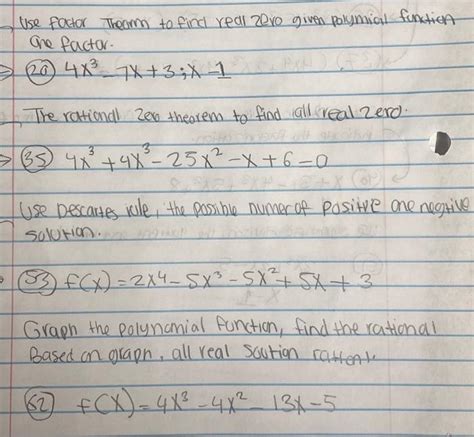 Use factor Theorm to find real zero given polymial function
one factor.
20 4x³ - 7x + 3 ; x - 1
The rational zero theorem to find all real zero.
35 4x³ + 4x³ - 25x² - x + 6 = 0
Use Descartes rule, the possible numer of positive one negtive
solution.
53 f(x) = 2x4 - 5x³ - 5x² + 5x + 3
Graph the polynomial function, find the rational
Based on graph, all real soution
62 f(x) = 4x³ - 4x² - 13x - 5